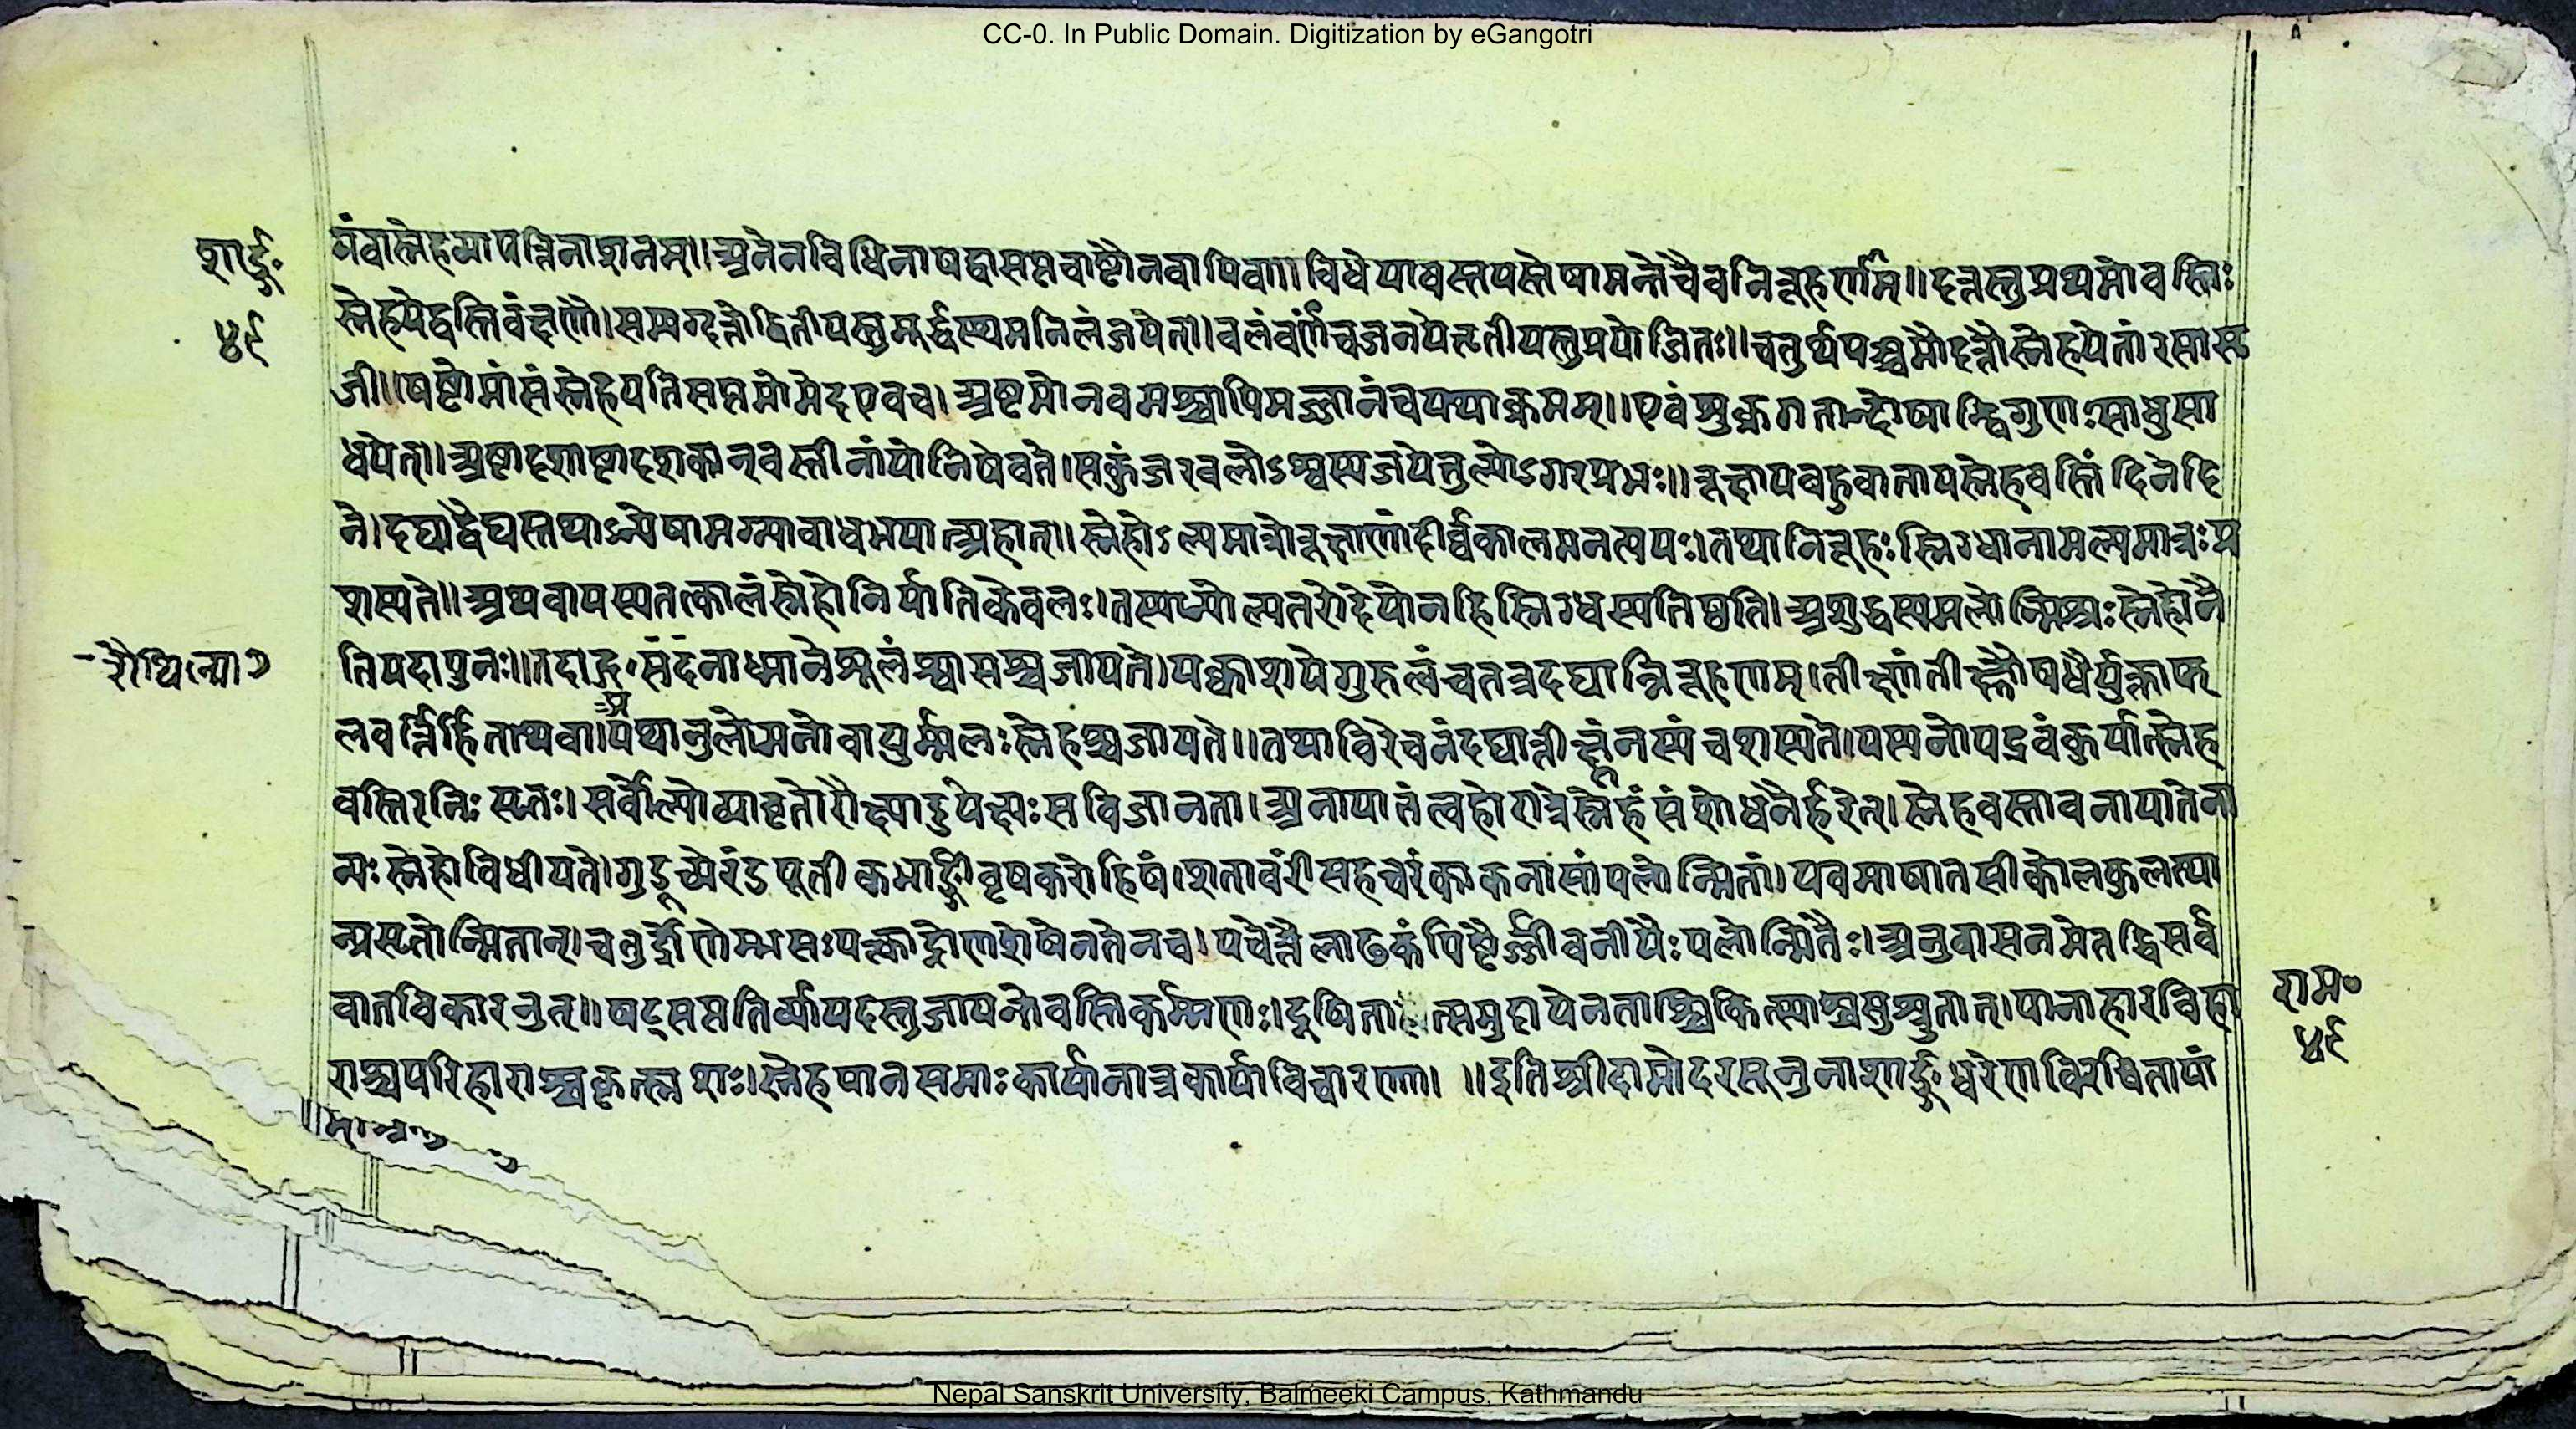 CC-0. In Public Domain. Digitization by eGangotri
शार्ङ्ग॰
४९
स्नेहव्यापत्तिनाशनम्॥ अनेनविधिनाषड्वासप्तवाष्टौनवापिवा॥ विधेयावस्तयस्तेषामन्तेचैवनिरूहणम्॥ दत्तस्तुप्रथमोवस्तिः
स्नेहयेद्वस्तिवंक्षणौ। सम्यग्दत्तोद्वितीयस्तुमूर्द्धस्थमनिलंजयेत्। बलंवर्णंचजनयेत्तृतीयस्तुप्रयोजितः॥ चतुर्थपञ्चमौदत्तौस्नेहयेतांरसासृ
जी॥ षष्टोमांसंस्नेहयतिसप्तमोमेदएवच। अष्टमोनवमश्चापिमज्जानंचयथाक्रमम्॥ एवंशुक्रगतान्दोषान्द्विगुणःसाधुसा
धयेत्। अष्टादशाष्टादशकान्वस्तीनांयोनिषेवते। सकुंजरबलोऽश्वस्यजयेत्तुल्योऽमरप्रभः॥ रूक्षायबहुवातायस्नेहवस्तिंदिनेदि
ने। दद्याद्वैद्यस्तथाऽन्येषामग्न्याबाधभयात्त्र्यहात्॥ स्नेहोऽल्पमात्रोरूक्षाणांदीर्घकालमनत्ययः। तथानिरूहःस्निग्धानामल्पमात्रःप्र
शस्यते॥ अथवायस्यतत्कालंस्नेहोनिर्यातिकेवलः। तस्याप्योल्पतरोदेयोनहिस्निग्धस्यतिष्ठति। अशुद्धस्यमलोन्मिश्रःस्नेहोनै
शैथिल्या१
तियदापुनः॥ तदाङ्गसदनाध्मानेशूलंश्वासश्चजायते। पक्वाशयेगुरुत्वंचतत्रदद्यान्निरूहणम्। तीक्ष्णंतीक्ष्णौषधैर्युक्ताफ
लवर्त्तिर्हिताथवा। यथानुलोमनोवायुर्म्मलःस्नेहश्चजायते॥ तथाविरेचनंदद्यात्तीक्ष्णंनस्यंचशस्यते। यस्यनोपद्रवंकुर्यात्स्नेह
वस्तिरनिःसृतः। सर्वोल्पोव्यावृतोरौक्ष्यादुपेक्ष्यःसविजानता। अनायातंत्वहोरात्रेस्नेहंसंशोधनैर्हरेत्। स्नेहवस्तावनायातेना
न्यःस्नेहोविधीयते। गुडूच्येरंडपूतीकभार्ङ्गीवृषकरोहिषं। शतावरींसहचरंकाकनासांपलोन्मितां। यवमाषातसीकोलकुलत्था
न्प्रसृतोन्मितान्। चतुर्द्रोणेम्भसःपक्त्वाद्रोणशेषेनतेनच। पचेत्तैलाढकंपिष्टैर्ज्जीवनीयैःपलोन्मितैः। अनुवासनमेतद्धिसर्व
वातविकारनुत्॥ षट्सप्ततिर्व्यापदस्तुजायन्तेवस्तिकर्म्मणः। दूषितात्समुदायेनताश्चिकित्स्याश्चसुश्रुतात्। पानाहारविहा
राम॰
४९
राश्चपरिहाराश्चकृत्स्नशः। स्नेहपानसमाःकार्यानात्रकार्याविचारणा। ॥ इतिश्रीदामोदरसूनुनाशार्ङ्गधरेणविरचितायां
Nepal Sanskrit University, Balmeeki Campus, Kathmandu